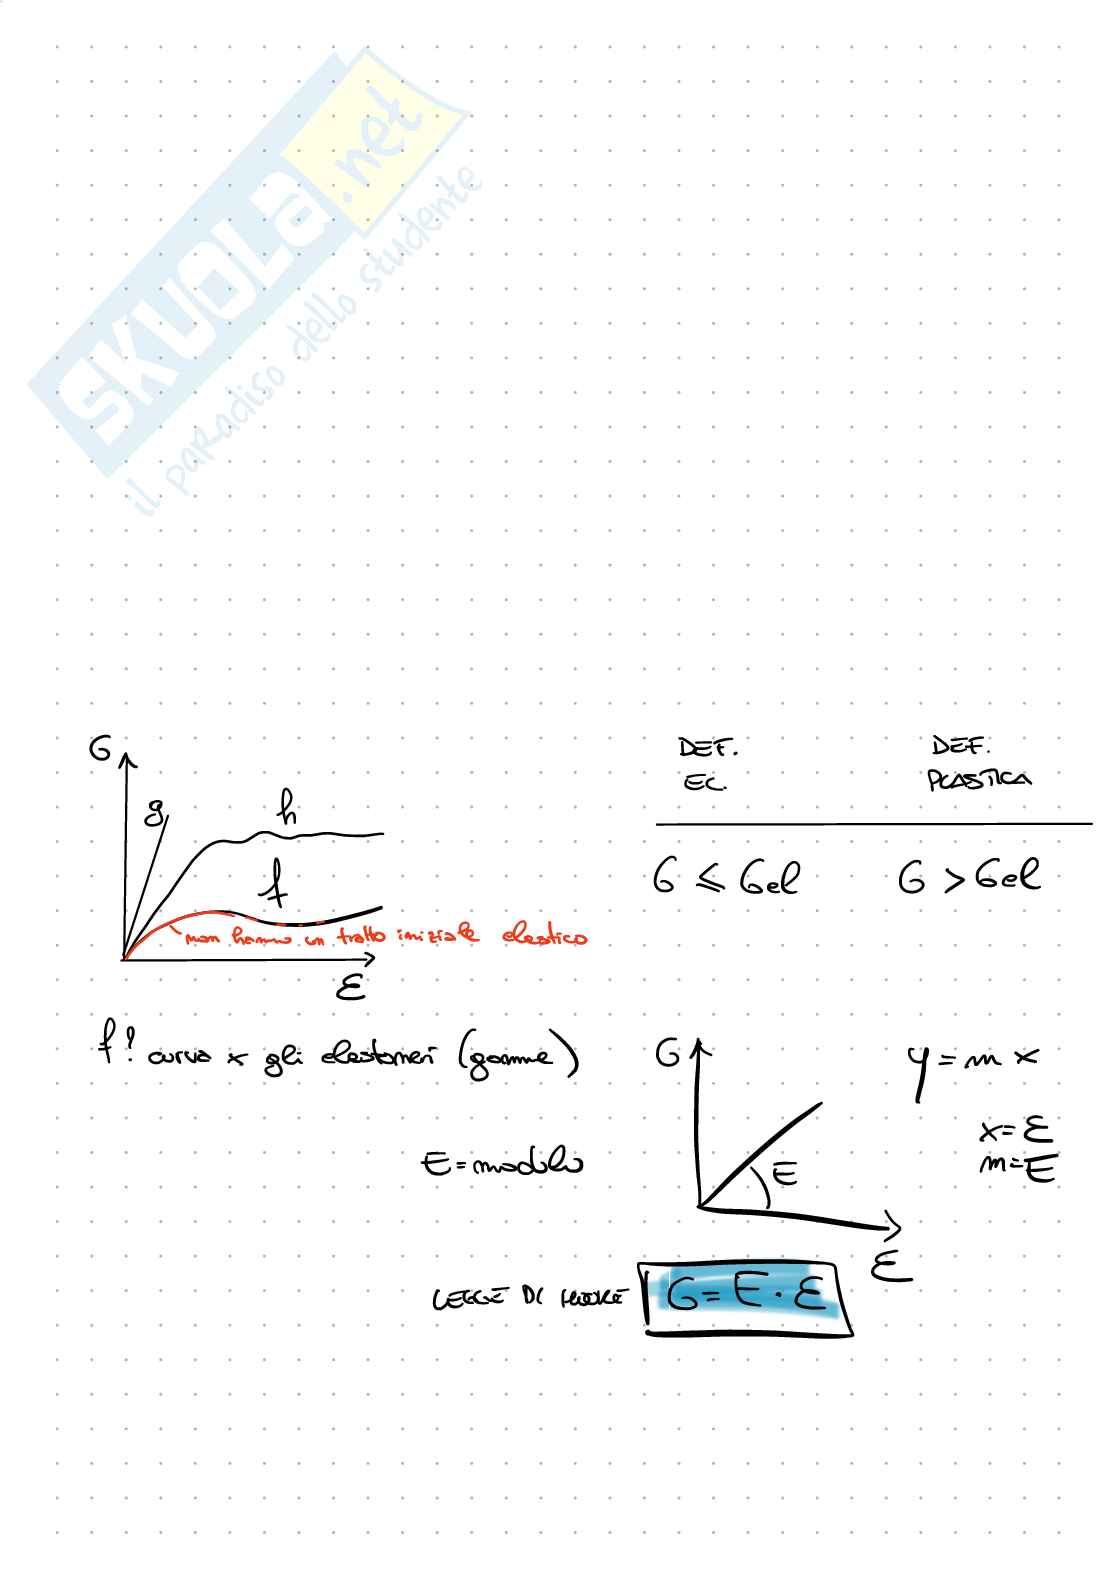 SKUOLA.net
il paradiso dello studente
σ
g
h
f
non hanno un tratto iniziale elastico
ε
DEF. EL.
DEF. PLASTICA
σ ≤ σel
σ > σel
f: curva x gli elastomeri (gomme)
E = modulo
σ
E
ε
y = m x
x = ε
m = E
LEGGE DI HOOKE σ = E · ε